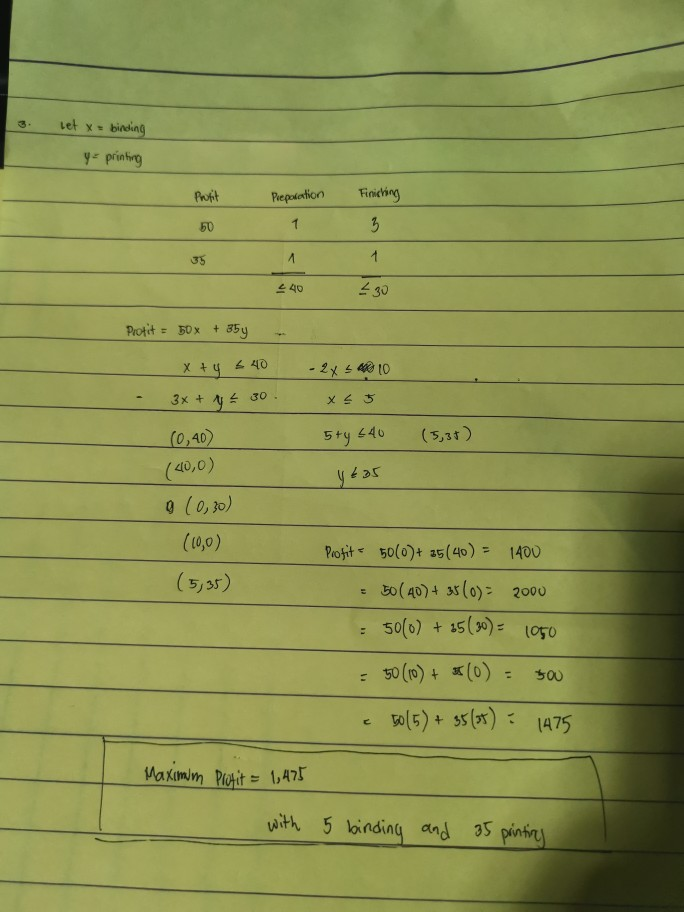 3. Let x = binding
y = printing
Profit Preparation Finishing
50 1 3
35 1 1
≤ 40 ≤ 30
Profit = 50x + 35y
x + y ≤ 40 - 2x ≤ 10
- 3x + y ≤ 30 x ≤ 5
(0,40) 5+y ≤ 40 (5,35)
(40,0) y ≤ 35
(0,30)
(10,0) Profit = 50(0) + 35(40) = 1400
(5,35) = 50(40) + 35(0) = 2000
= 50(0) + 35(30) = 1050
= 50(10) + 35(0) = 500
= 50(5) + 35(35) = 1475
Maximum Profit = 1,475
with 5 binding and 35 printing